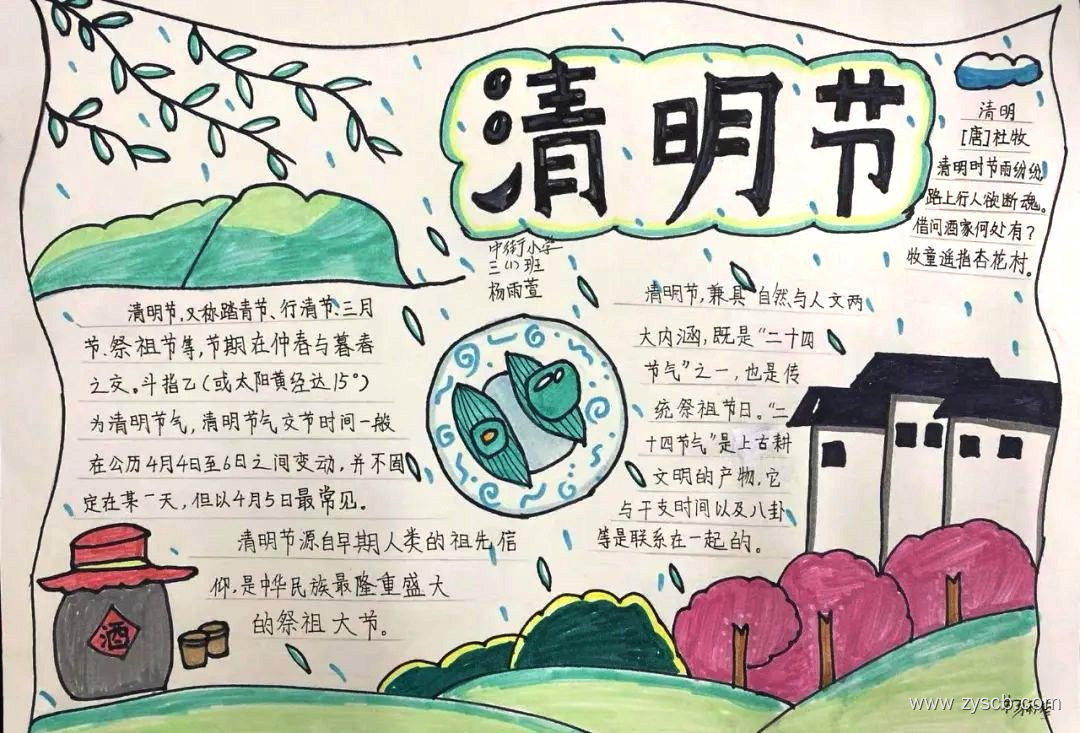 清明节
清明
[唐]杜牧
清明时节雨纷纷,
路上行人欲断魂。
借问酒家何处有?
牧童遥指杏花村。
中街小学
三(1)班
杨雨萱
清明节,又称踏青节、行清节、三月
节、祭祖节等,节期在仲春与暮春
之交。斗指乙(或太阳黄经达15°)
为清明节气,清明节气交节时间一般
在公历4月4日至6日之间变动,并不固
定在某一天,但以4月5日最常见。
清明节源自早期人类的祖先信
仰,是中华民族最隆重盛大
的祭祖大节。
清明节,兼具自然与人文两
大内涵,既是“二十四
节气”之一,也是传
统祭祖节日。“二
十四节气”是上古耕
文明的产物,它
与干支时间以及八卦
等是联系在一起的。
酒
www.zyscb.com